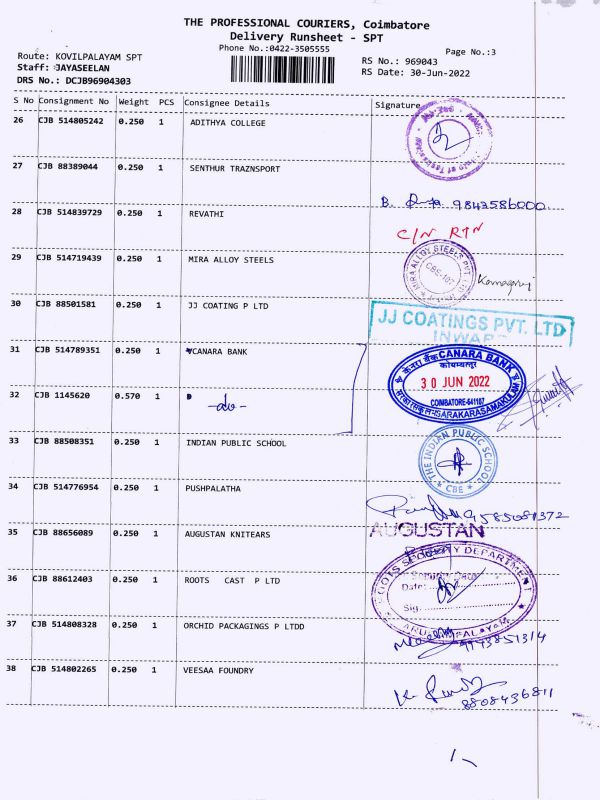 THE PROFESSIONAL COURIERS, Coimbatore
Delivery Runsheet - SPT
Phone No.:0422-3505555
Page No.:3
Route: KOVILPALAYAM SPT
RS No.: 969043
Staff: JAYASEELAN
RS Date: 30-Jun-2022
DRS No.: DCJB96904303
S No Consignment No Weight PCS Consignee Details Signature
26 CJB 514805242 0.250 1 ADITHYA COLLEGE
27 CJB 88389044 0.250 1 SENTHUR TRAZNSPORT
B. 9843586000
28 CJB 514839729 0.250 1 REVATHI
C/N RTN
29 CJB 514719439 0.250 1 MIRA ALLOY STEELS
MIRA ALLOY STEELS PVT.
CBE-107
30 CJB 88501581 0.250 1 JJ COATING P LTD
JJ COATINGS PVT. LTD
INWARD
31 CJB 514789351 0.250 1 CANARA BANK
केनरा बैंक CANARA BANK
कोयम्बत्तूर
30 JUN 2022
COIMBATORE-641107
SARKARASAMAKULAM
32 CJB 1145620 0.570 1
-do-
33 CJB 88508351 0.250 1 INDIAN PUBLIC SCHOOL
THE INDIAN PUBLIC SCHOOL
CBE
34 CJB 514776954 0.250 1 PUSHPALATHA
9585081372
35 CJB 88656089 0.250 1 AUGUSTAN KNITEARS
AUGUSTAN
36 CJB 88612403 0.250 1 ROOTS CAST P LTD
ROOTS SECURITY DEPARTMENT
Date:
Sig.
37 CJB 514808328 0.250 1 ORCHID PACKAGINGS P LTDD
9943851314
38 CJB 514802265 0.250 1 VEESAA FOUNDRY
8808436811